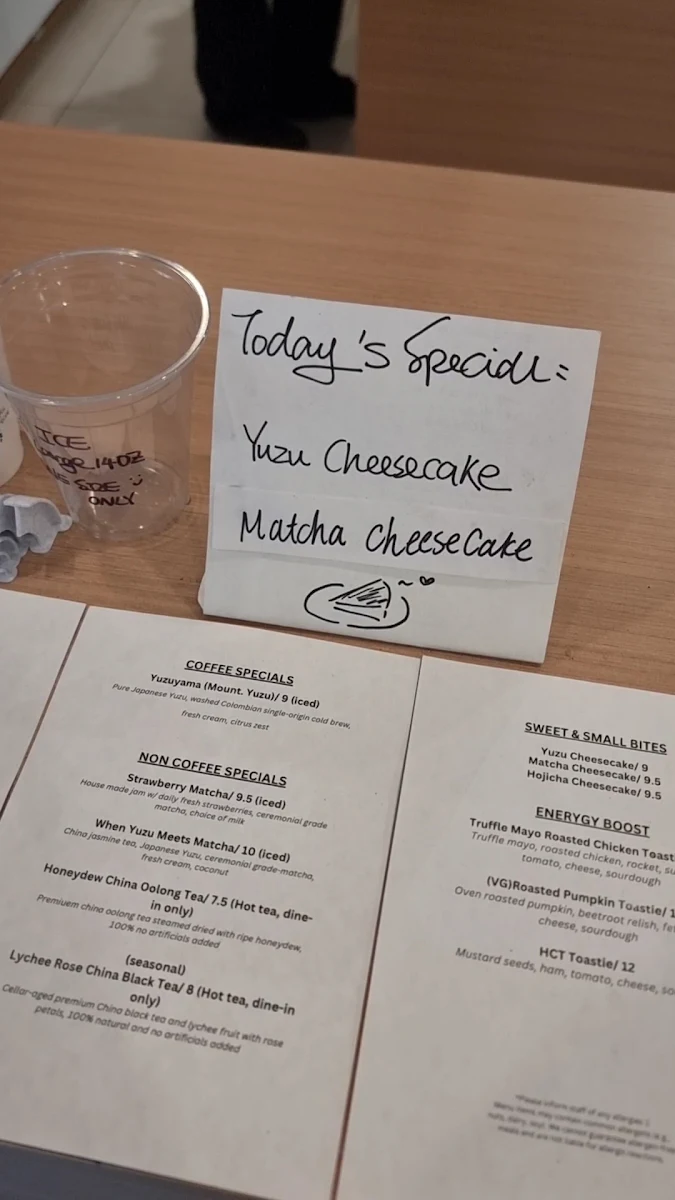 ICE
Large 14OZ
SIZE
ONLY
Today's Special:
Yuzu Cheesecake
Matcha CheeseCake
COFFEE SPECIALS
Yuzuyama (Mount. Yuzu)/ 9 (iced)
Pure Japanese Yuzu, washed Colombian single-origin cold brew,
fresh cream, citrus zest
NON COFFEE SPECIALS
Strawberry Matcha/ 9.5 (iced)
House made jam w/ daily fresh strawberries, ceremonial grade
matcha, choice of milk
When Yuzu Meets Matcha/ 10 (iced)
China jasmine tea, Japanese Yuzu, ceremonial grade-matcha,
fresh cream, coconut
Honeydew China Oolong Tea/ 7.5 (Hot tea, dine-
in only)
Premiuem china oolong tea steamed dried with ripe honeydew,
100% no artificials added
(seasonal)
Lychee Rose China Black Tea/ 8 (Hot tea, dine-in
only)
Cellar-aged premium China black tea and lychee fruit with rose
petals, 100% natural and no artificials added
SWEET & SMALL BITES
Yuzu Cheesecake/ 9
Matcha Cheesecake/ 9.5
Hojicha Cheesecake/ 9.5
ENERYGY BOOST
Truffle Mayo Roasted Chicken Toast
Truffle mayo, roasted chicken, rocket,
tomato, cheese, sourdough
(VG)Roasted Pumpkin Toastie/
Oven roasted pumpkin, beetroot relish,
cheese, sourdough
HCT Toastie/ 12
Mustard seeds, ham, tomato, cheese,
*Please inform staff of any allergies
Menu items may contain common allergens (e.g.,
nuts, dairy, soy). We cannot guarantee allergen-free
meals and are not liable for allergic reactions.